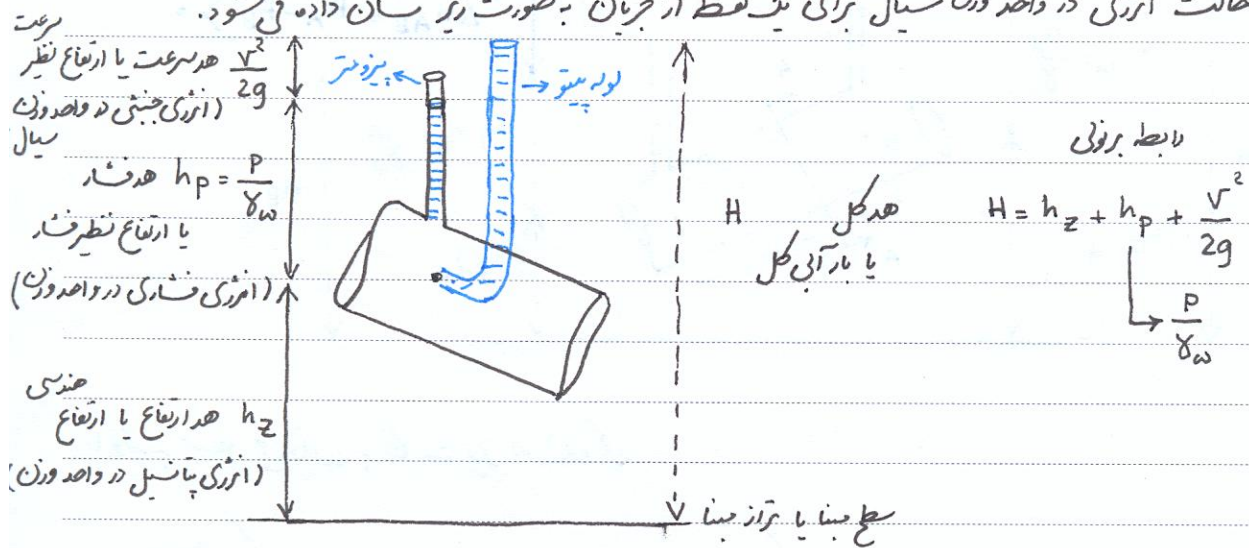 حالت انرژی در واحد وزن سیال برای یک نقطه از جریان به صورت زیر نشان داده می شود.
سرعت
v²/2g هد سرعت یا ارتفاع نظیر
(انرژی جنبشی در واحد وزن
سیال
پیزومتر
لوله پیتو
h_P = P/γ_w هد فشار
یا ارتفاع نظیر فشار
(انرژی فشاری در واحد وزن)
هندسی
h_z هد ارتفاع یا ارتفاع
(انرژی پتانسیل در واحد وزن)
H هد کل
یا بار آبی کل
رابطه برنولی
H = h_z + h_p + v²/2g
P/γ_w
سطح مبنا یا تراز مبنا